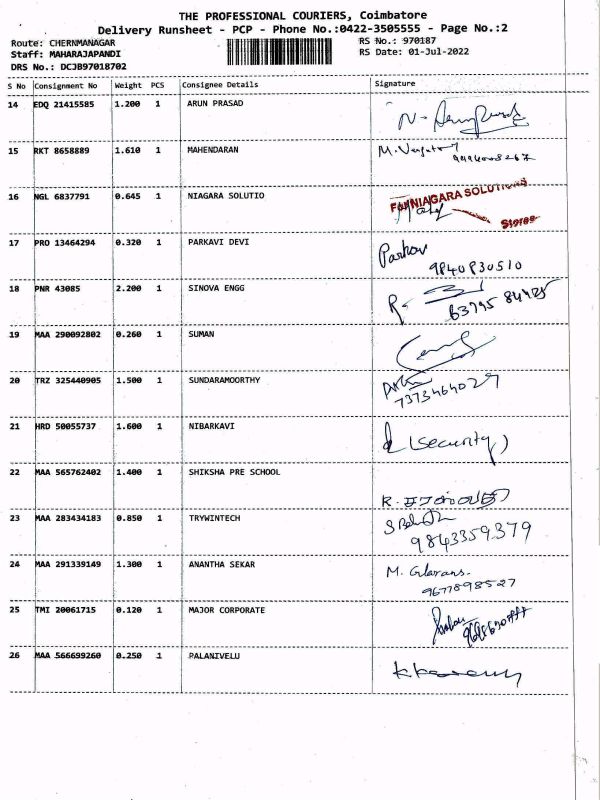 THE PROFESSIONAL COURIERS, Coimbatore
Delivery Runsheet - PCP - Phone No.:0422-3505555 - Page No.:2
Route: CHERNMANAGAR
RS No.: 970187
Staff: MAHARAJAPANDI
RS Date: 01-Jul-2022
DRS No.: DCJB97018702
S No Consignment No Weight PCS Consignee Details Signature
14 EDQ 21415585 1.200 1 ARUN PRASAD
15 RKT 8658889 1.610 1 MAHENDARAN
16 NGL 6837791 0.645 1 NIAGARA SOLUTIO NIAGARA SOLUTIONS
Stores
17 PRO 13464294 0.320 1 PARKAVI DEVI Parkavi
9840830510
18 PNR 43085 2.200 1 SINOVA ENGG
19 MAA 290092802 0.260 1 SUMAN
20 TRZ 325440905 1.500 1 SUNDARAMOORTHY
7373464029
21 HRD 50055737 1.600 1 NIBARKAVI (security)
22 MAA 565762402 1.400 1 SHIKSHA PRE SCHOOL
R. சரஸ்வதி
23 MAA 283434183 0.850 1 TRYWINTECH
9843359379
24 MAA 291339149 1.300 1 ANANTHA SEKAR M.
9677898527
25 TMI 20061715 0.120 1 MAJOR CORPORATE
26 MAA 566699260 0.250 1 PALANIVELU